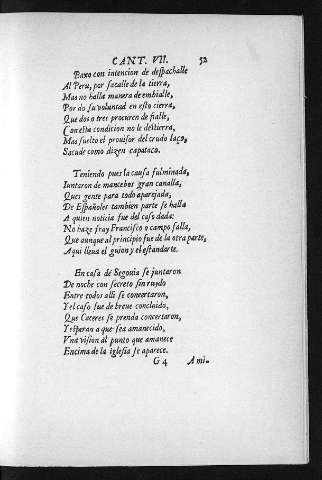 CANT. VII. 52
Baxo con intencion de despachalle
Al Peru, por sacalle de la tierra,
Mas no halla manera de embialle,
Por do su voluntad en esto cierra,
Que dos o tres procuren de fialle,
Con esta condicion no le destierra,
Mas suelto el prouisor del crudo laço,
Sacude como dizen capataço.
Teniendo pues la causa fulminada,
Iuntaron de mancebos gran canalla,
Ques gente para todo aparejada,
De Españoles tambien parte se halla
A quien noticia fue del caso dada:
No haze fray Francisco o campo falla,
Que aunque al principio fue de la otra parte,
Aqui lleua el guion y el estandarte.
En casa de Segouia se juntaron
De noche con secreto sin ruydo
Entre todos alli se concertaron,
Y el caso fue de breue concluido,
Que Caceres se prenda concertaron,
Y esperan a que sea amanecido,
Vna vision al punto que amanece
Encima de la iglesia se aparece.
G 4 Ami-